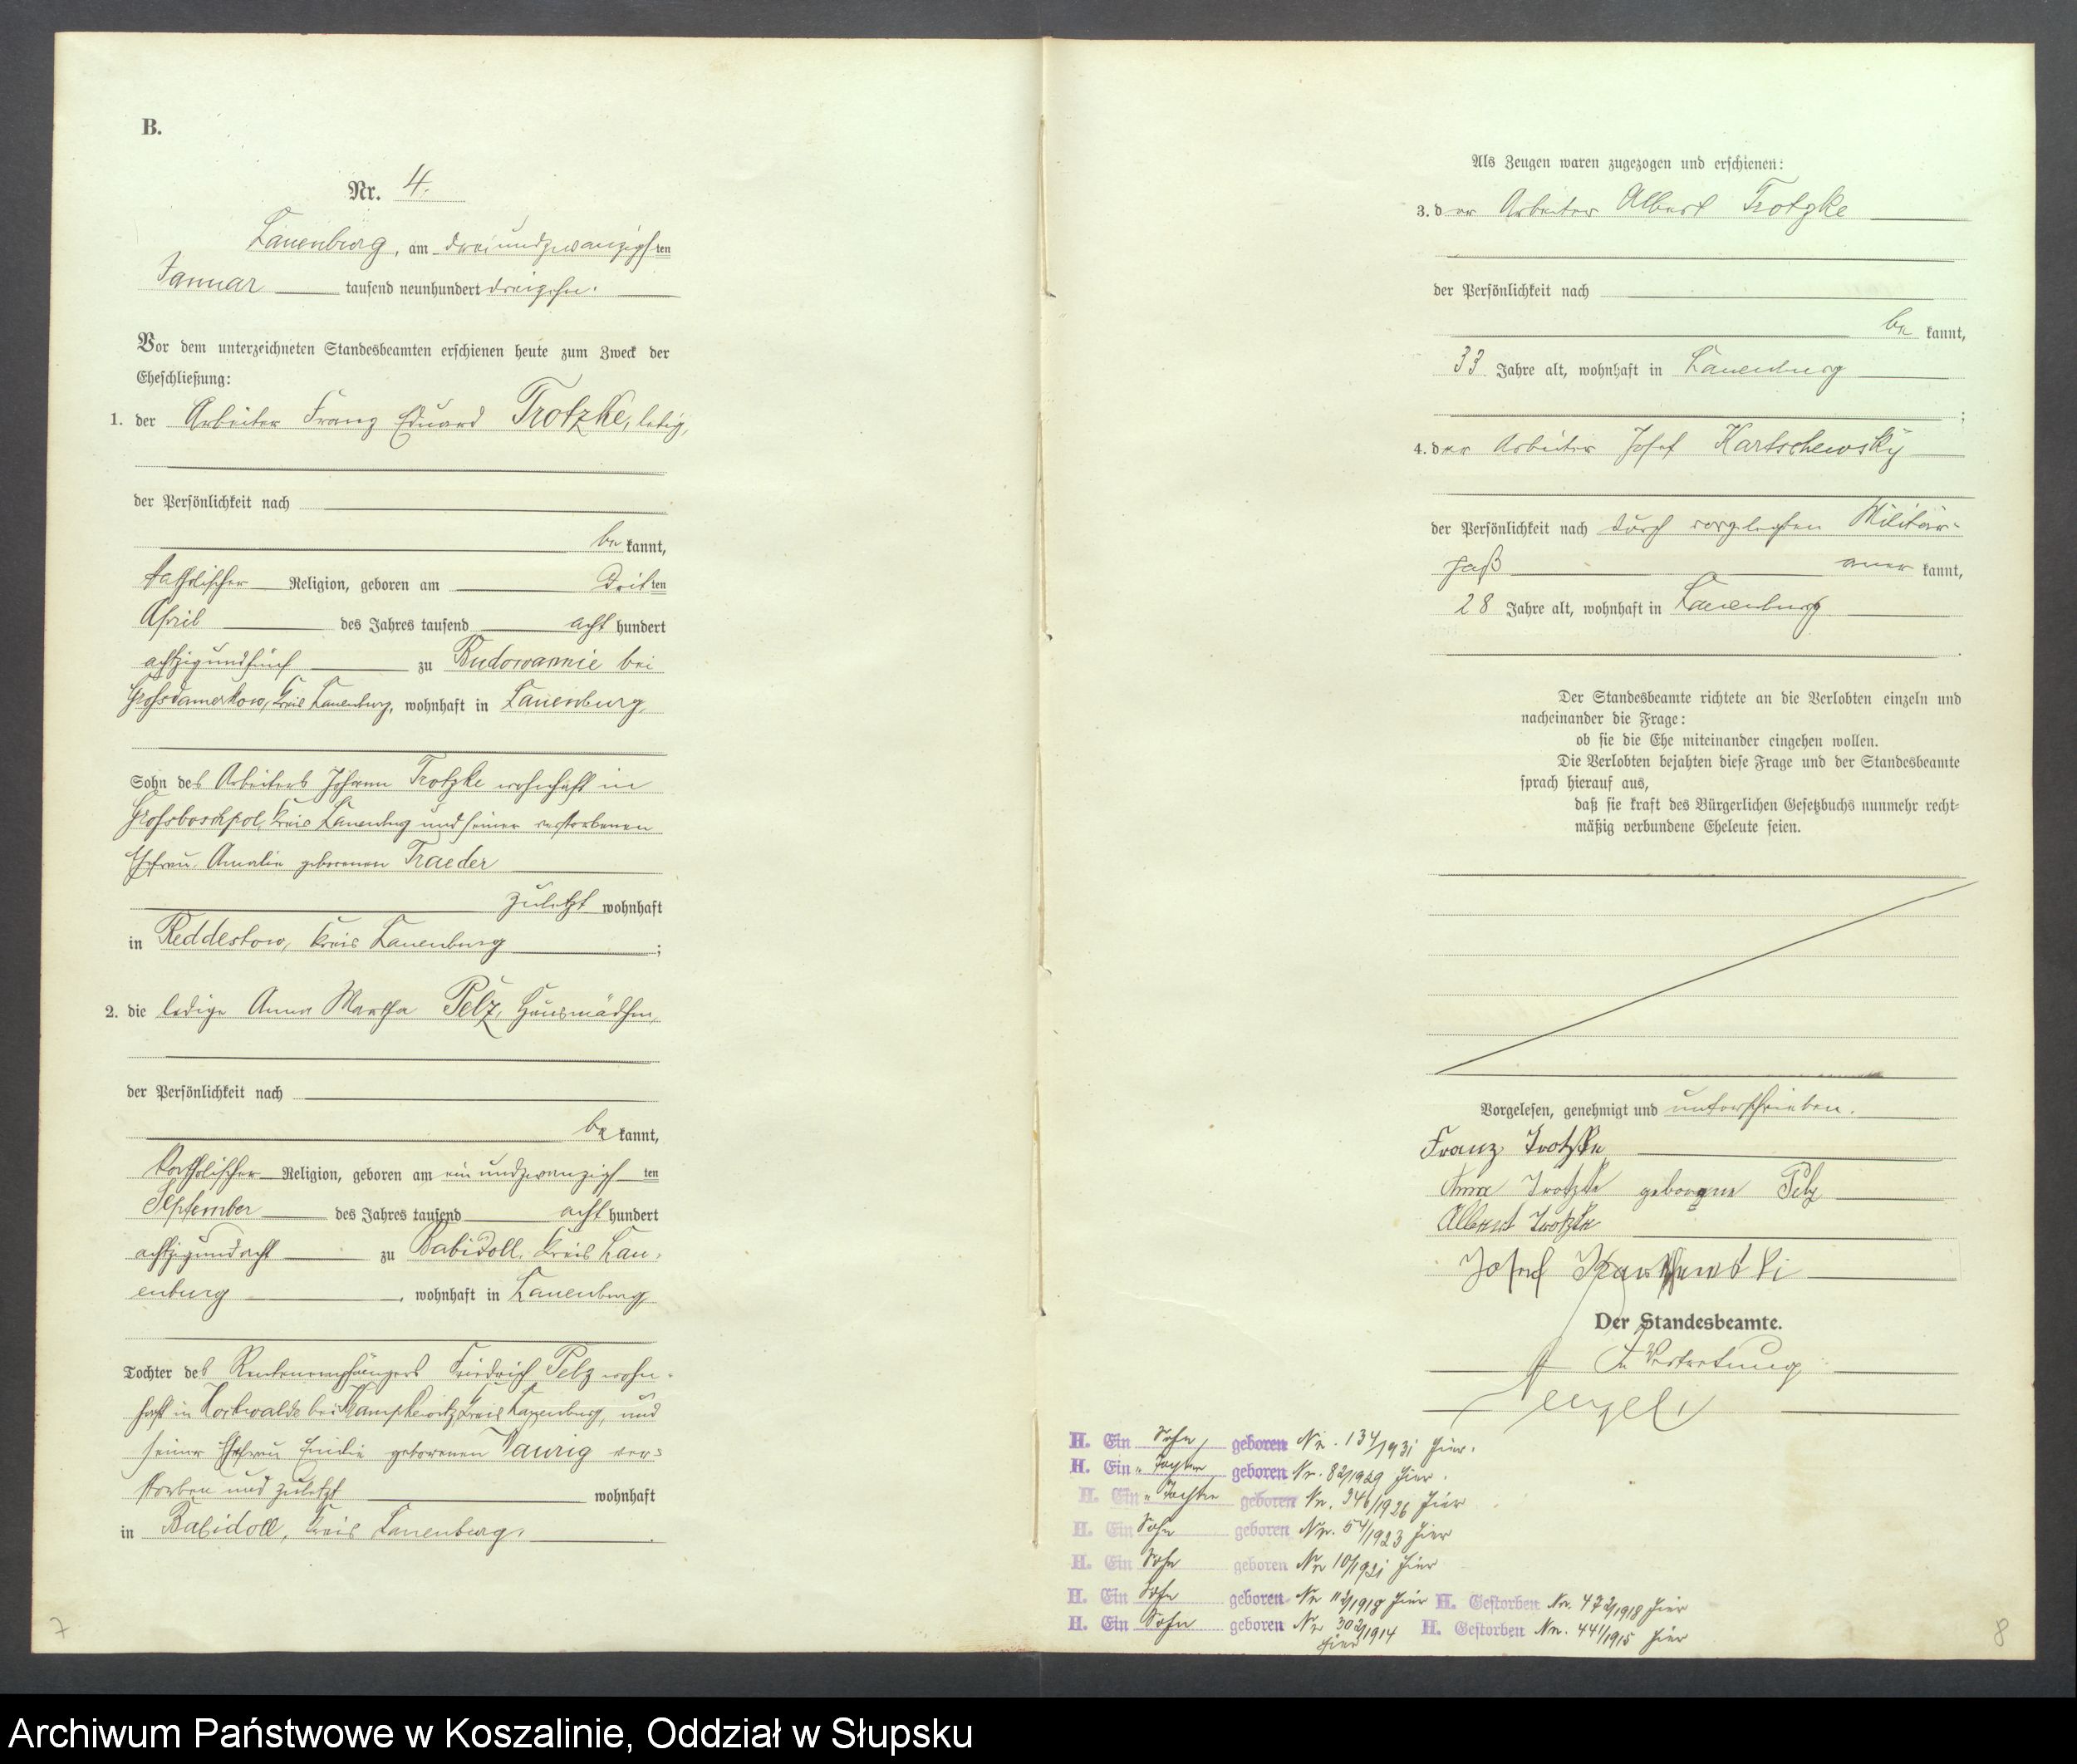 B.
Nr. 4.
Lauenburg, am dreiundzwanzigsten
Januar tausend neunhundert dreizehn.
Vor dem unterzeichneten Standesbeamten erschienen heute zum Zweck der
Eheschließung:
1. der Arbeiter Franz Eduard Trotzke, ledig,
der Persönlichkeit nach
bekannt,
katholischer Religion, geboren am dritten
April des Jahres tausend acht hundert
achtzigundfünf zu Budowannie bei
Großdamerkow, Kreis Lauenburg, wohnhaft in Lauenburg,
Sohn des Arbeiters Johann Trotzke wohnhaft in
Großboschpol, Kreis Lauenburg und seiner verstorbenen
Ehefrau Amalie geborenen Traeder
zuletzt wohnhaft
in Reddestow, Kreis Lauenburg ;
2. die ledige Anna Martha Pelz, Hausmädchen,
der Persönlichkeit nach
bekannt,
katholischer Religion, geboren am einundzwanzigsten
September des Jahres tausend acht hundert
achtzigundacht zu Babidoll, Kreis Lau-
enburg, wohnhaft in Lauenburg,
Tochter des Rentenempfängers Friedrich Pelz wohn-
haft in bei Kreis Lauenburg, und
seiner Ehefrau Emilie geborenen ver-
storben und zuletzt wohnhaft
in Babidoll, Kreis Lauenburg.
7
Als Zeugen waren zugezogen und erschienen:
3. der Arbeiter Albert Trotzke
der Persönlichkeit nach
bekannt,
33 Jahre alt, wohnhaft in Lauenburg
;
4. der Arbeiter Josef Kartschewsky
der Persönlichkeit nach durch vorgelegten Militär-
paß anerkannt,
28 Jahre alt, wohnhaft in Lauenburg
.
Der Standesbeamte richtete an die Verlobten einzeln und
nacheinander die Frage:
ob sie die Ehe miteinander eingehen wollen.
Die Verlobten bejahten diese Frage und der Standesbeamte
sprach hierauf aus,
daß sie kraft des Bürgerlichen Gesetzbuchs nunmehr recht-
mäßig verbundene Eheleute seien.
Vorgelesen, genehmigt und unterschrieben.
Franz Trotzke
Anna Trotzke geborene Pelz
Albert Trotzke
Josef
Der Standesbeamte.
In Vertretung
H. Ein Sohn, geboren Nr. 134/1931 hier.
H. Ein " Tochter geboren Nr. 82/1929 hier.
H. Ein " Tochter geboren Nr. 346/1926 hier
H. Ein Sohn geboren Nr. 54/1923 hier
H. Ein Sohn geboren Nr 10/1921 hier
H. Ein Sohn geboren Nr 112/1918 hier H. Gestorben Nr. 472/1918 hier
H. Ein Sohn geboren Nr 302/1914 hier H. Gestorben Nr. 441/1915 hier
8
Archiwum Państwowe w Koszalinie, Oddział w Słupsku